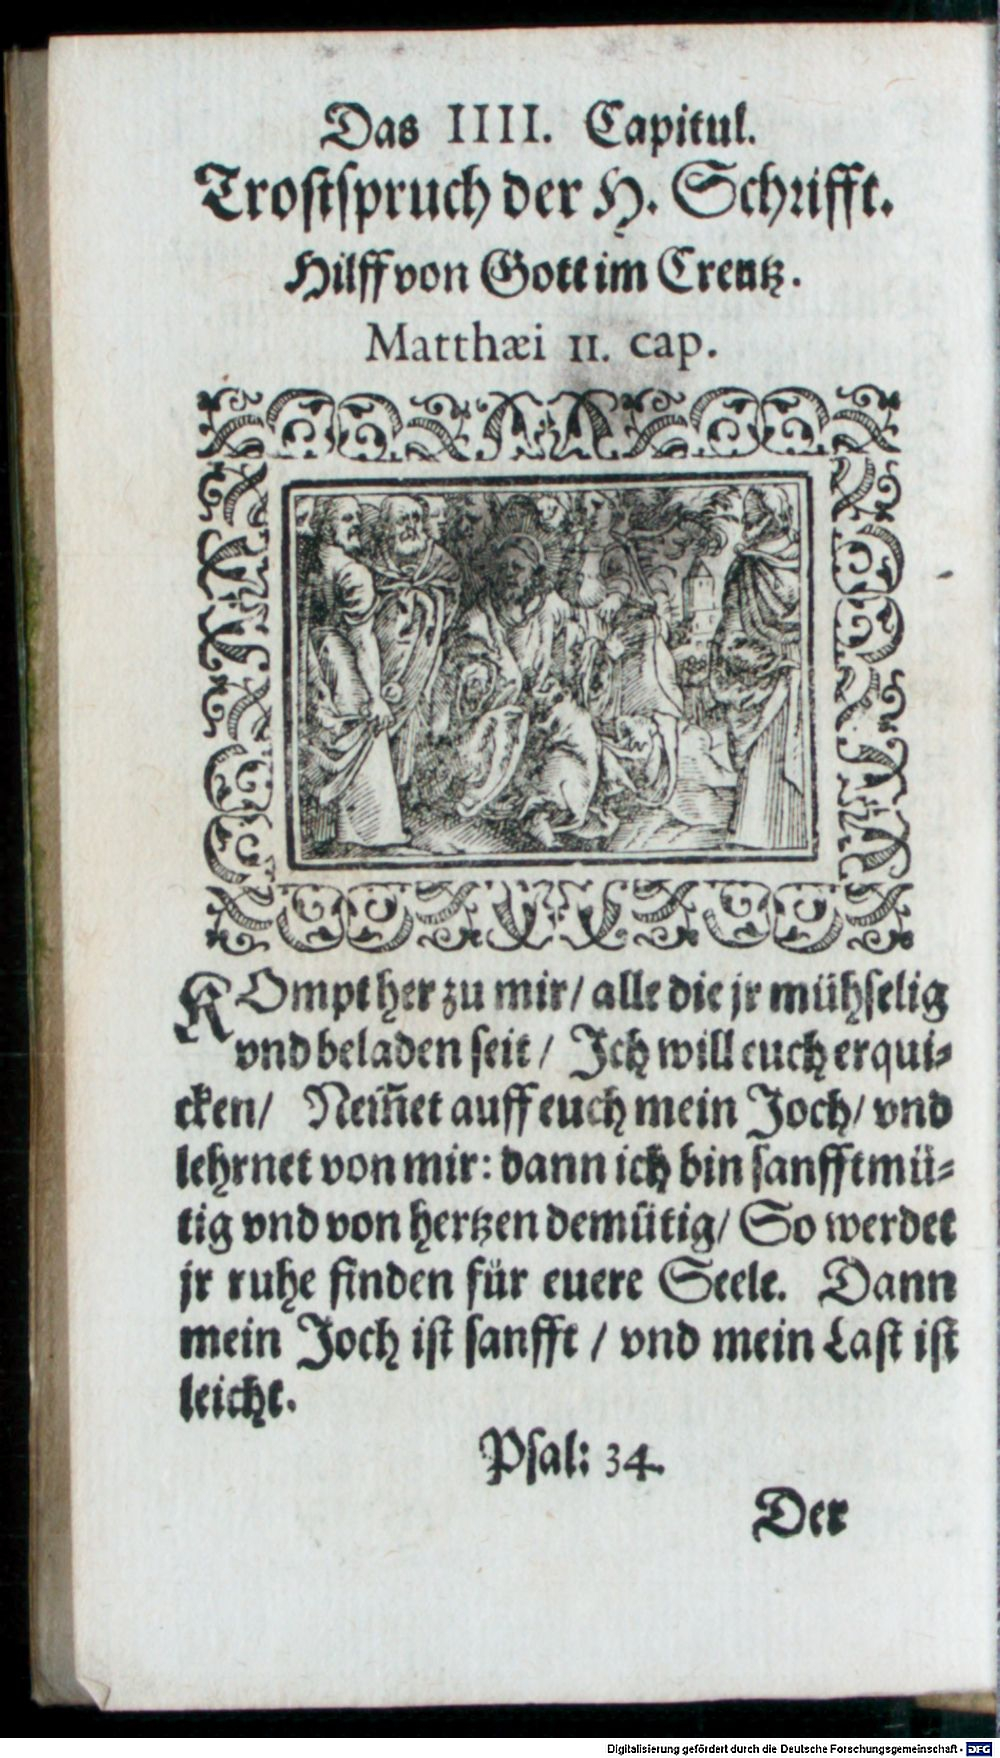 Das IIII. Capitul.
Trostspruch der H. Schrifft.
Hilff von Gott im Creutz.
Matthæi 11. cap.
KOmpt her zu mir/ alle die jr mühselig
vnd beladen seit/ Jch will euch erqui-
cken/ Nem̃et auff euch mein Joch/ vnd
lehrnet von mir: dann ich bin sanfftmü-
tig vnd von hertzen demütig/ So werdet
jr ruhe finden für euere Seele. Dann
mein Joch ist sanfft / vnd mein Last ist
leicht.
Psal: 34.
Der
Digitalisierung gefördert durch die Deutsche Forschungsgemeinschaft - DFG